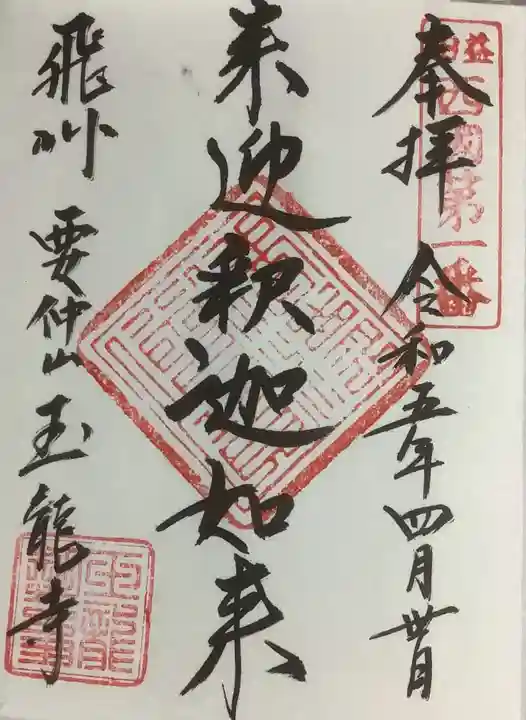 益田西國第一番
奉拝 令和五年四月卅日
来迎釈迦如来
飛州 要仲山 玉龍寺